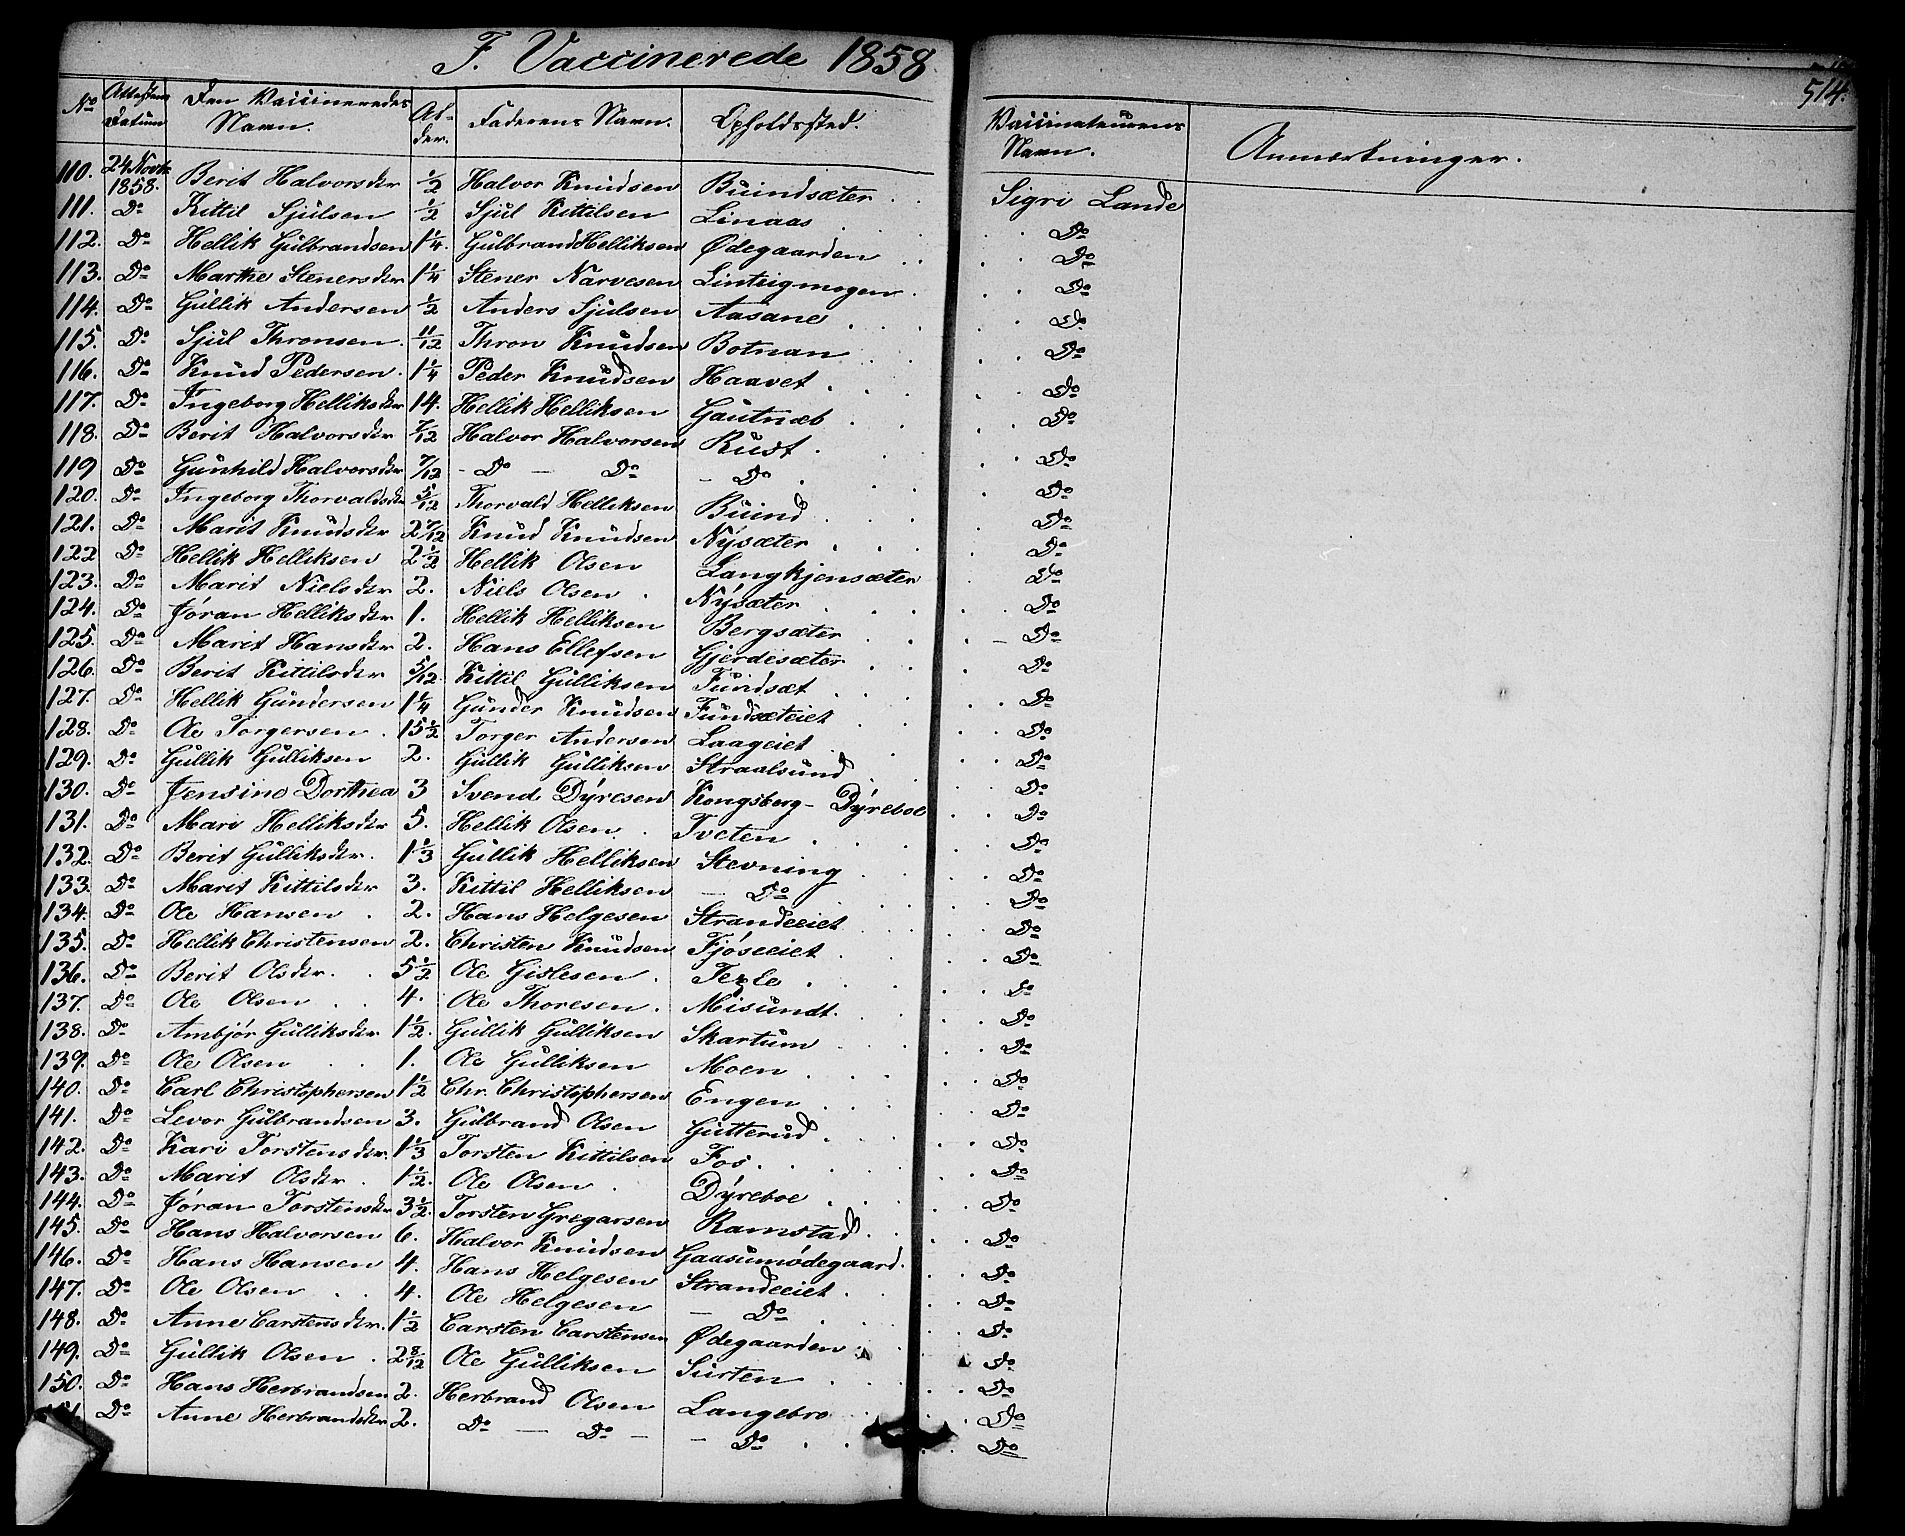 F. Vaccinerede 1858
514.
No Attestens Datum Den Vaccineredes Navn. Alder. Faderens Navn. Opholdssted. Vaccinateurens Navn. Anmærkninger.
110. 24 Novbr 1858. Berit Halvorsdtr ½ Halvor Knudsen Buindsæter . . Sigri Lande
111. Do Kittil Sjulsen ½ Sjul Kittilsen Linaas . . Do
112. Do Hellik Gulbrandsen 1¼. Gulbrand Helliksen Ødegaarden . . Do
113. Do Marthe Stenersdtr 1¼ Stener Narvesen Linteigmogen . Do
114. Do Gullik Andersen ½ Anders Sjulsen Aasane . . Do
115. Do Sjul Thronsen. 11/12 Thron Knudsen Botnan . . Do
116. Do Knud Pedersen. 1¼ Peder Knudsen Haavet . . Do
117. Do Ingeborg Helliksdtr 14. Hellik Helliksen Gautneb . . Do
118. Do Berit Halvorsdtr 7/12 Halvor Halvorsen Rust . . Do
119 Do Gunhild Halvorsdtr 7/12 - Do — Do - Do . . Do
120. Do Ingeborg Thorvaldsdtr 5/12 Thorvald Helliksen Buind . . Do
121. Do Marit Knudsdtr 2 7/12 Knud Knudsen Nysæter . . Do
122 Do Hellik Helliksen 2½ Hellik Olsen Langkjensæter . Do
123. Do Marit Nielsdtr 2. Niels Olsen . Nysæter . . Do
124. Do Jøran Helliksdtr 1. Hellik Helliksen Bergsæter . . Do
125. Do Marit Hansdtr 2. Hans Ellefsen Gjerdesæter . . Do
126. Do Berit Kittilsdtr 5/12. Kittil Gulliksen Fundsæt . . Do
127. Do Hellik Gundersen 1¼ Gunder Knudsen Fundsæteiet . . Do
128. Do Ole Torgersen . 15½ Torger Andersen Laageiet . . Do
129. Do Gullik Gulliksen 2. Gullik Gulliksen Straalsund . . Do
130. Do Jensine Dorthea 3 Svend Dyresen Kongsberg - Dyreboe . . Do
131. Do Mari Helliksdtr 5. Hellik Olsen . Tveten . . Do
132. Do Berit Gulliksdtr. 1⅓ Gullik Helliksen Stevning . . Do
133. Do Marit Kittilsdtr 3. Kittil Helliksen — Do . . Do
134. Do Ole Hansen . 2. Hans Helgesen Strandeeiet . . Do
135. Do Hellik Christensen 2. Christen Knudsen Fjøseeiet . . Do
136. Do Berit Olsdtr. . 5½ Ole Gislesen . . . Do
137. Do Ole Olsen . . 4. Ole Thoresen . Misundt. . . Do
138. Do Ambjør Gulliksdtr 1½. Gullik Gulliksen Skartum . . Do
139. Do Ole Olsen . . 1. Ole Gulliksen Moen . . Do
140. Do Carl Christophersen 1½ Chr. Christophersen Engen . . Do
141. Do Levor Gulbrandsen 3. Gulbrand Olsen Gutterud . . Do
142. Do Kari Torstensdtr. 1⅓ Torsten Kittilsen Fos . . Do
143. Do Marit Olsdtr . 1½. Ole Olsen . Dyreboe . . Do
144. Do Jøran Torstensdtr 3½. Torsten Gregarsen Ramstad . . Do
145. Do Hans Halvorsen 6. Halvor Knudsen Gaasumødegaard. . . Do
146. Do Hans Hansen 4. Hans Helgesen Strandeeiet . . Do
147. Do Ole Olsen . . 4. Ole Helgesen — Do . . Do
148. Do Anne Carstensdtr. 1½ Carsten Carstensen Ødegaarden . . Do
149. Do Gullik Olsen . 2 8/12 Ole Gulliksen Surten . . Do
150. Do Hans Herbrandsen 2. Herbrand Olsen Langebro . . Do
151. Do Anne Herbrandsdtr 2. Do — Do - - Do . . Do